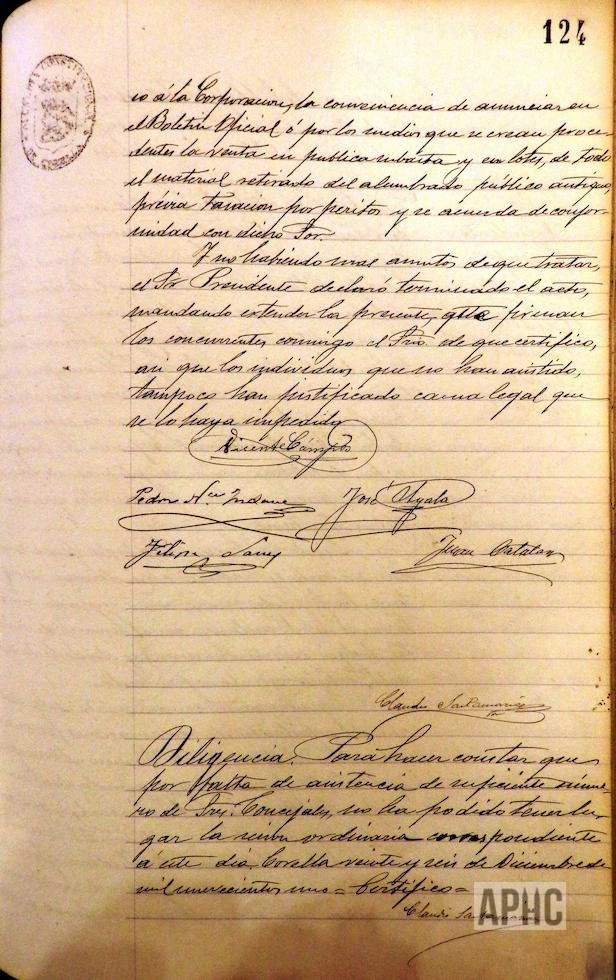 124
so á la Corporacion, la conveniencia de anunciar en
el Boletin Oficial ó por los medios que se crean proce-
dentes la venta en publica subasta y en lotes, de todo
el material retirado del alumbrado público antiguo,
prévia tasacion por peritos y se acuerda de confor-
midad con dicho Sor.
Y no habiendo mas asuntos de que tratar,
el Sr Presidente declaró terminado el acto,
mandando estender la presente, que firman
los concurrentes, conmigo el Srio. de que certifico,
asi que los individuos que no han asistido,
tampoco han justificado causa legal que
se lo haya impedido.
Vicente Campos
Pedro José Ayala
Juan Catalan
Claudio Salamanca
Diligencia. Para hacer constar que
por falta de asistencia de suficiente núme-
ro de Sres. Concejales, no ha podido tener lu-
gar la sesion ordinaria correspondiente
á este dia. Corella veinte y seis de Diciembre de
mil novecientos uno = Certifico =
Claudio
APHC